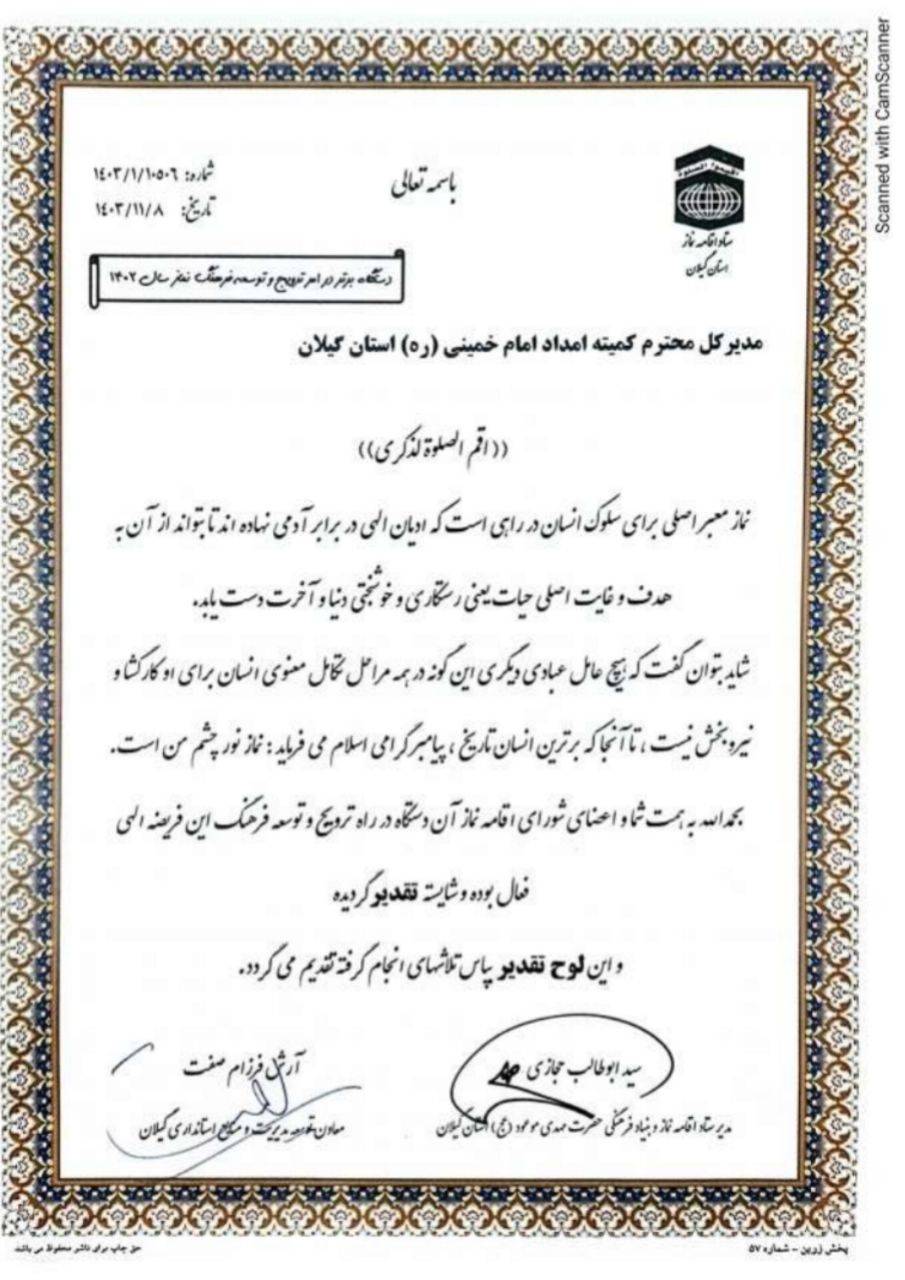 Scanned with CamScanner
اقیموا الصلوة
ستاد اقامه نماز
استان گیلان
باسمه تعالی
شماره: ۱٤۰۳/۱/۱۰۵۰٦
تاریخ: ۱٤۰۳/۱۱/۸
دستگاه برتر در امر ترویج و توسعه فرهنگ نماز سال ۱۴۰۲
مدیرکل محترم کمیته امداد امام خمینی (ره) استان گیلان
((اقم الصلوة لذکری))
نماز معبر اصلی برای سلوک انسان در راهی است که ادیان الهی در برابر آدمی نهاده اند تا بتواند از آن به
هدف و غایت اصلی حیات یعنی رستگاری و خوشبختی دنیا و آخرت دست یابد.
شاید بتوان گفت که هیچ عامل عبادی دیگری این گونه در همه مراحل تکامل معنوی انسان برای او کارگشا و
نیروبخش نیست ، تا آنجا که برترین انسان تاریخ ، پیامبر گرامی اسلام می فرماید : نماز نور چشم من است.
بحمدالله به همت شما و اعضای شورای اقامه نماز آن دستگاه در راه ترویج و توسعه فرهنگ این فریضه الهی
فعال بوده و شایسته تقدیر گردیده
و این لوح تقدیر بپاس تلاشهای انجام گرفته تقدیم می گردد.
سید ابوطالب حجازی
مدیر ستاد اقامه نماز و بنیاد فرهنگی حضرت مهدی موعود (عج) استان گیلان
آرش فرزام صفت
معاون توسعه مدیریت و منابع استانداری گیلان
پخش زرین - شماره ۵۷
حق چاپ برای ناشر محفوظ می باشد